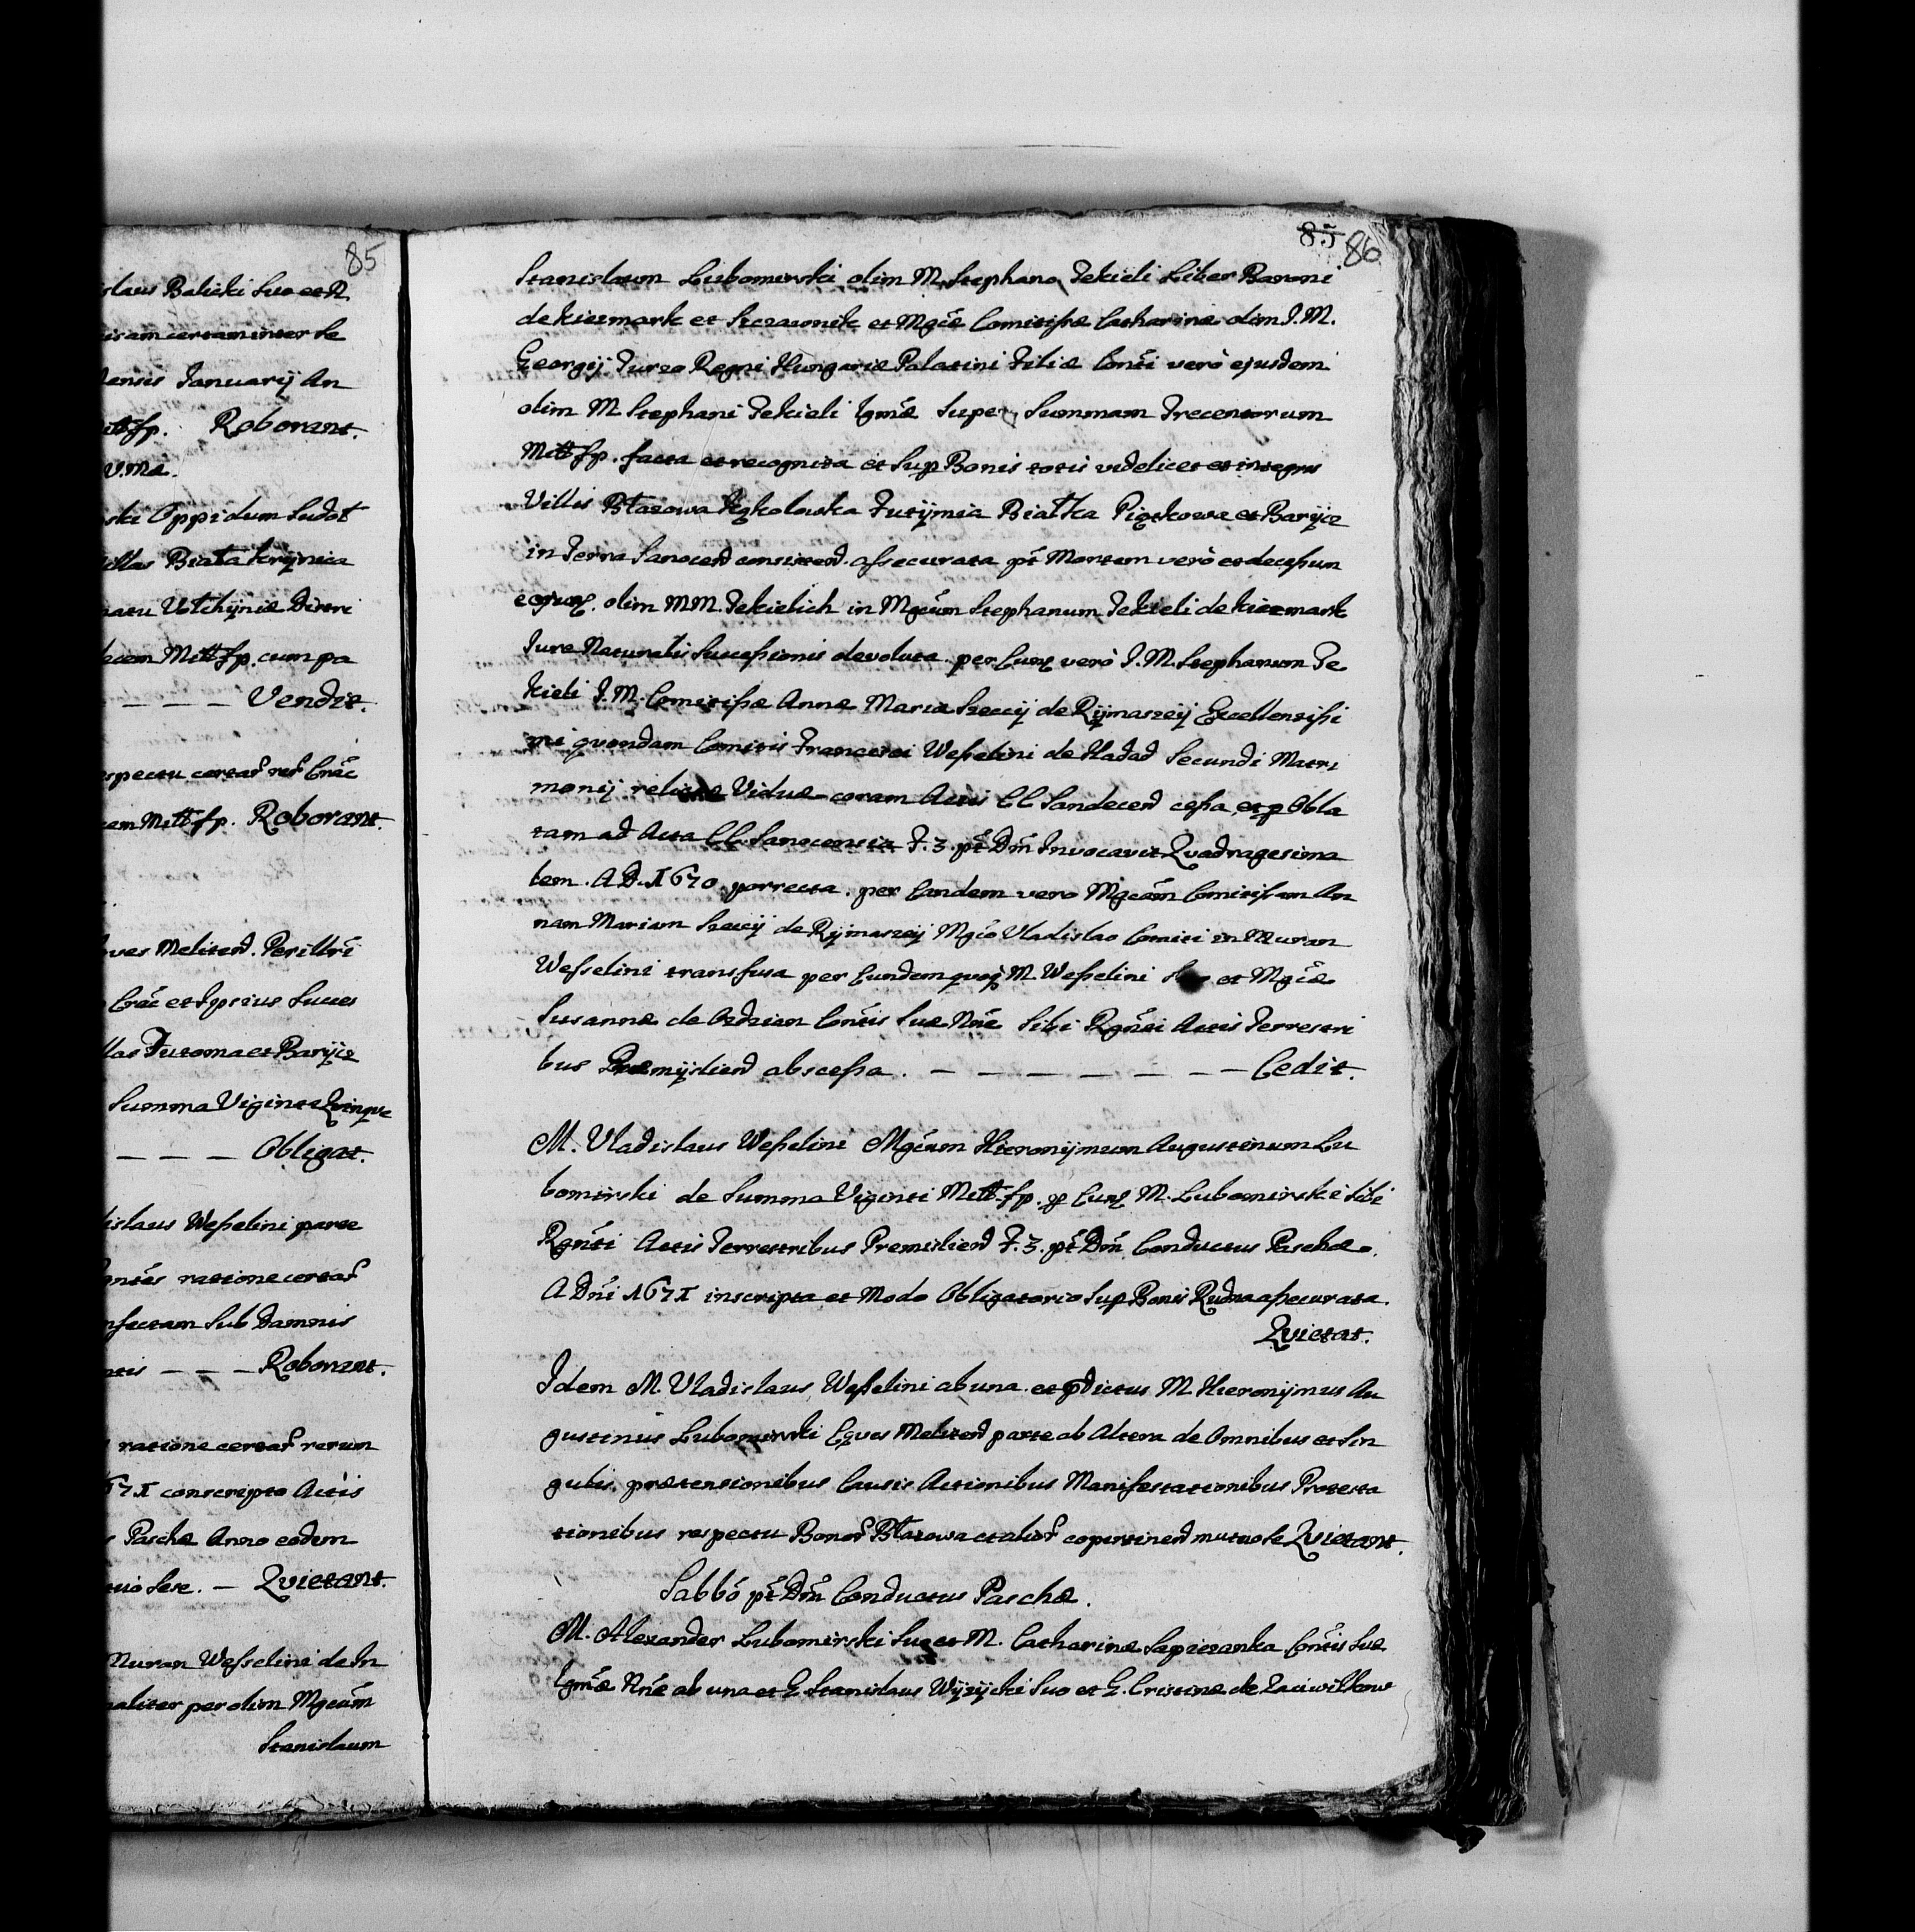 85
slaus Balicki Suo et N.
iram certam inter se
densis Januarij An
Mill fp. Roborant.
V. Ma.
ski Oppidum Sudoł
illas Biała Krynica
natu Volhyniæ Districi
decem Mill fp. cum pa
— — — — Vendit.
espectu certar rer Crac
cem Mill fp. Roborant.
ques Meliten. Perillri
Crac et Ipsius Succes
llas Futoma et Barycz
Summa Viginti Quinque
— — — Obligat.
dislaus Weſselini parte
gntes ratione certar
nfectam Sub Damnis
ntis — — — Roborant.
ratione certar rerum
671 conscripto Actis
s Paschæ Anno eodem
tuo Sese. — Quietant.
Muran Weſselini de In
naliter per olim Mgcum
Stanislaum
85 86
Stanislaum Lubomirski olim M. Stephano Tekieli Liber Baroni
de Kiezmark et Szczawnik et Mgcæ Comitiſsæ Catharinæ olim J. M.
Georgij Turzo Regni Hungariæ Palatini Filiæ Conti verò ejusdem
olim M. Stephani Tekieli lgmæ Super Summam Trecentorum
Mill fp. facta et recognita et Sup Bonis totis videlicet et integris
Villis Błazowa Kąkolowka Futymia Białka Piątkowa et Baryjcz
in Terra Sanocen consisten. aſsecurata pt Mortem verò et deceſsum
eorum. olim MM. Tekielich in Mgcum Stephanum Tekieli de Kiezmark
Jure Naturalis Succeſsionis devoluta per Eunq verò J. M. Stephanum Te
kieli J. M. Comitiſsæ Annæ Mariæ Szeczij de Ryjmaszeij Excellentiſsi
mi quondam Comitis Francisci Weſselini de Hadad Secundi Matri
monij relictæ Viduæ coram Actis CC. Sandecen ceſsa et p Obla
tam ad Acta CC. Sanocensia F. 3. pt Dm Invocavit Quadragesima
lem. A D. 1670 porrecta. per Eandem vero Mgcam Comitiſsam An
nam Mariam Szeczij de Ryjmaszeij Mgco Vladislao Comiti in Muran
Weſselini transfusa per Eundem quoq M. Weſselini et Mgcæ
Susannæ de Ordzian Contis Suæ Nne Sibi Rgnti Actis Terrestri
bus Præmyslien absceſsa. — — — — — — — Cedit.
M. Vladislaus Weſselini Mgcum Hieronijmum Augustinum Lu
bomirski de Summa Viginti Mill. fp. p Eunq M. Lubomirski Sibi
Rgnti Actis Terrestribus Premislien F. 3. pt Dm Conductus Paschæ.
A Dni 1671 inscripta et Modo Obligatorio Sup Bonis Rudna aſsecurata.
Quietat.
Idem M. Vladislaus Weſselini ab una et pdictus M. Hieronijmus Au
gustinus Lubomirski Eques Meliten parte ab Altera de Omnibus et Sin
gulis prætensionibus Causis Actionibus Manifestationibus Protesta
tionibus respectu Bonor Błazowa et alior copertinen mutuo se Quietant.
Sabbo pt Dm Conductus Paschæ.
M. Alexander Lubomirski Suo et M. Catharinæ Sapiezanka Contis Suæ
lgmæ Nne ab una et G. Stanislaus Wyzycki Suo et G. Cristinæ de Zaciwilkow